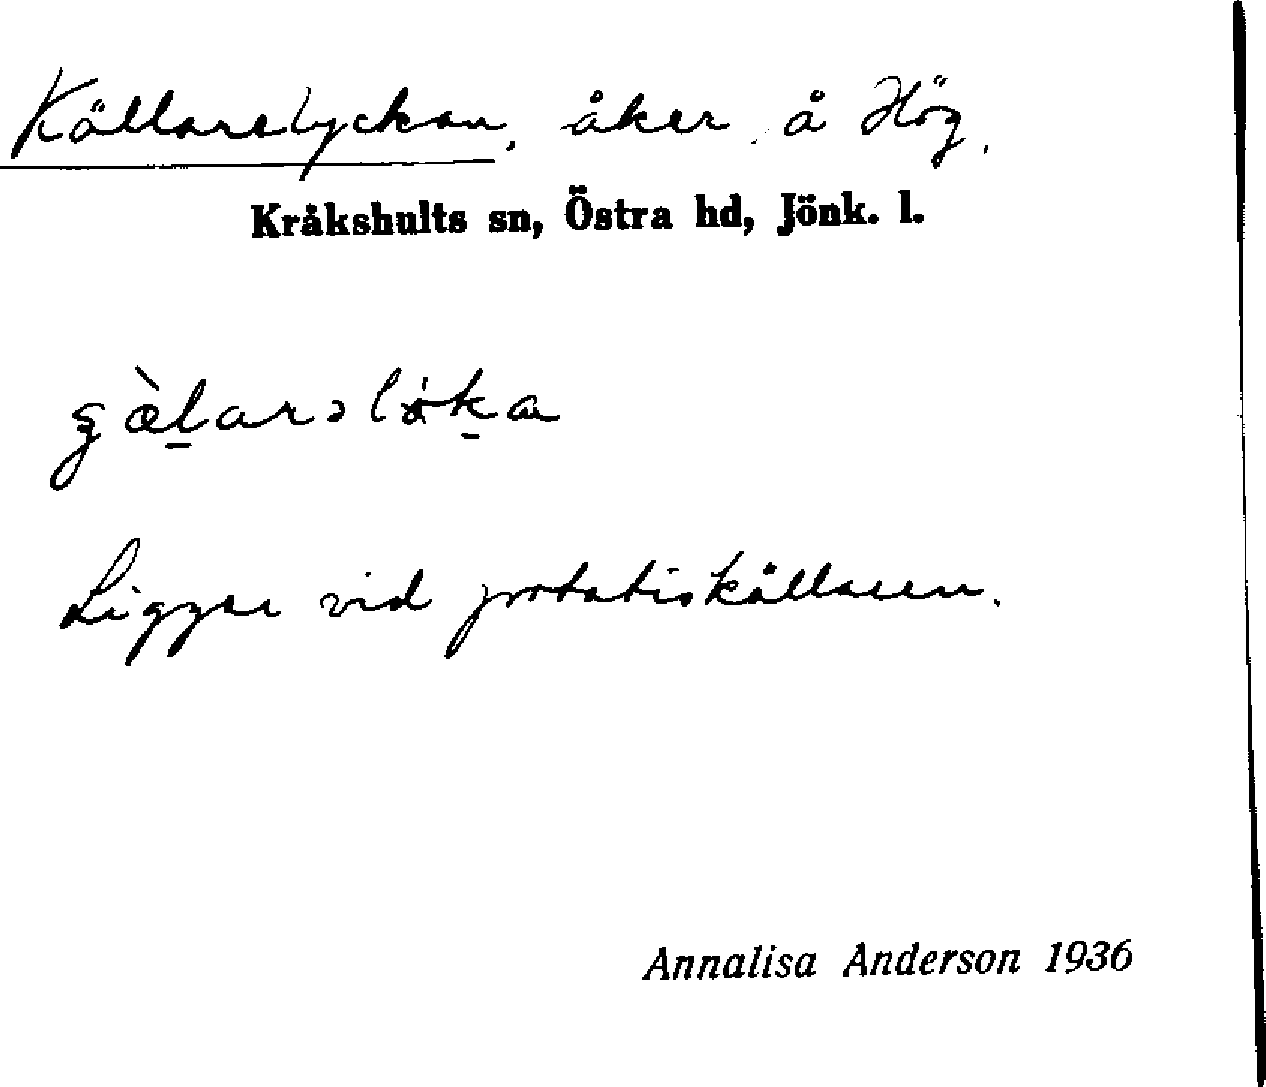 Källarelyckan, åker å Hög.
Kråkshults sn, Östra hd, Jönk. l.
Ligger vid potatiskällaren.
Annalisa Anderson 1936